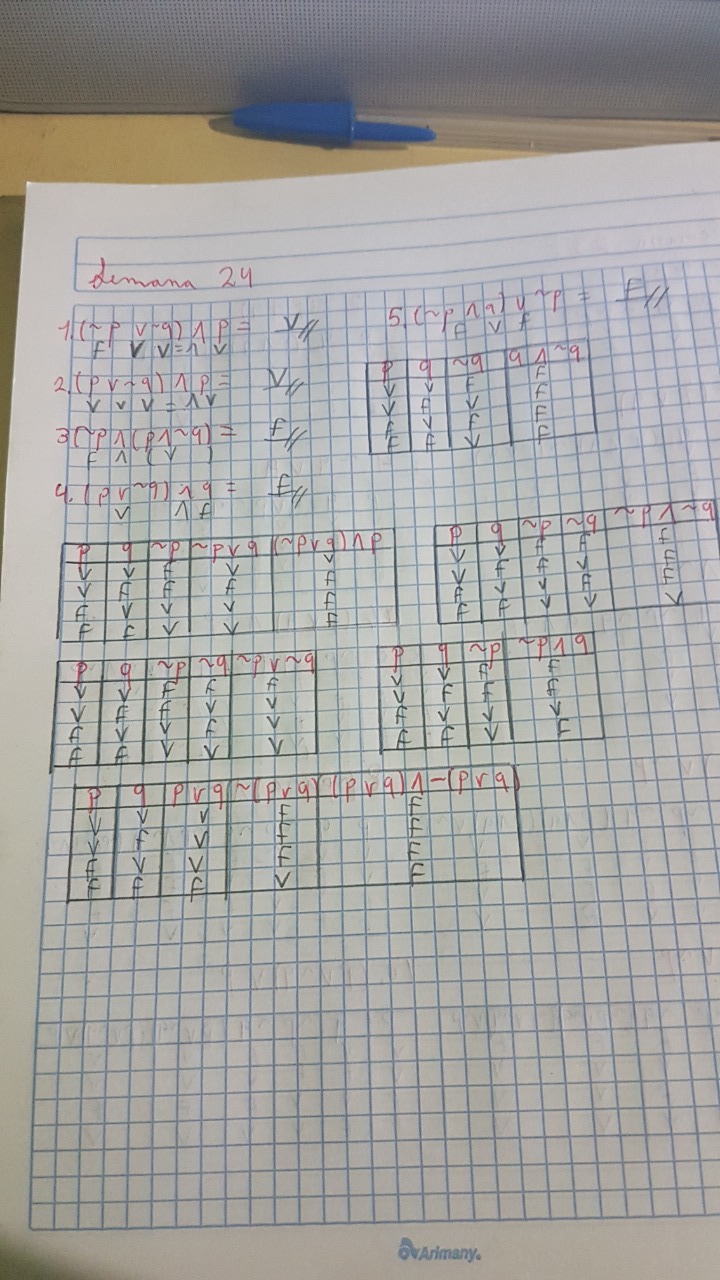 Semana 24
1. (~p v ~q) ∧ p = V//
F V V = ∧ V
2. (p v ~q) ∧ p = V//
V V V = ∧ V
3 (~p ∧ (p ∧ ~q) = F//
F ∧ ( V )
4. (p v ~q) ∧ q = F//
V ∧ F
5. (~p ∧ q) v ~p = F//
F V F
p q ~q q ∧ ~q
V V F F
V F V F
F V F F
F F V F
p q ~p ~p v q (~p v q) ∧ p
V V F V V
V F F F F
F V V V F
F F V V F
p q ~p ~q ~p ∧ ~q
V V F F F
V F F V F
F V V F F
F F V V V
p q ~p ~q ~p v ~q
V V F F F
V F F V V
F V V F V
F F V V V
p q ~p ~p ∧ q
V V F F
V F F F
F V V V
F F V F
p q p v q ~(p v q) (p v q) ∧ ~(p v q)
V V V F F
V F V F F
F V V F F
F F F V F
Arimany.